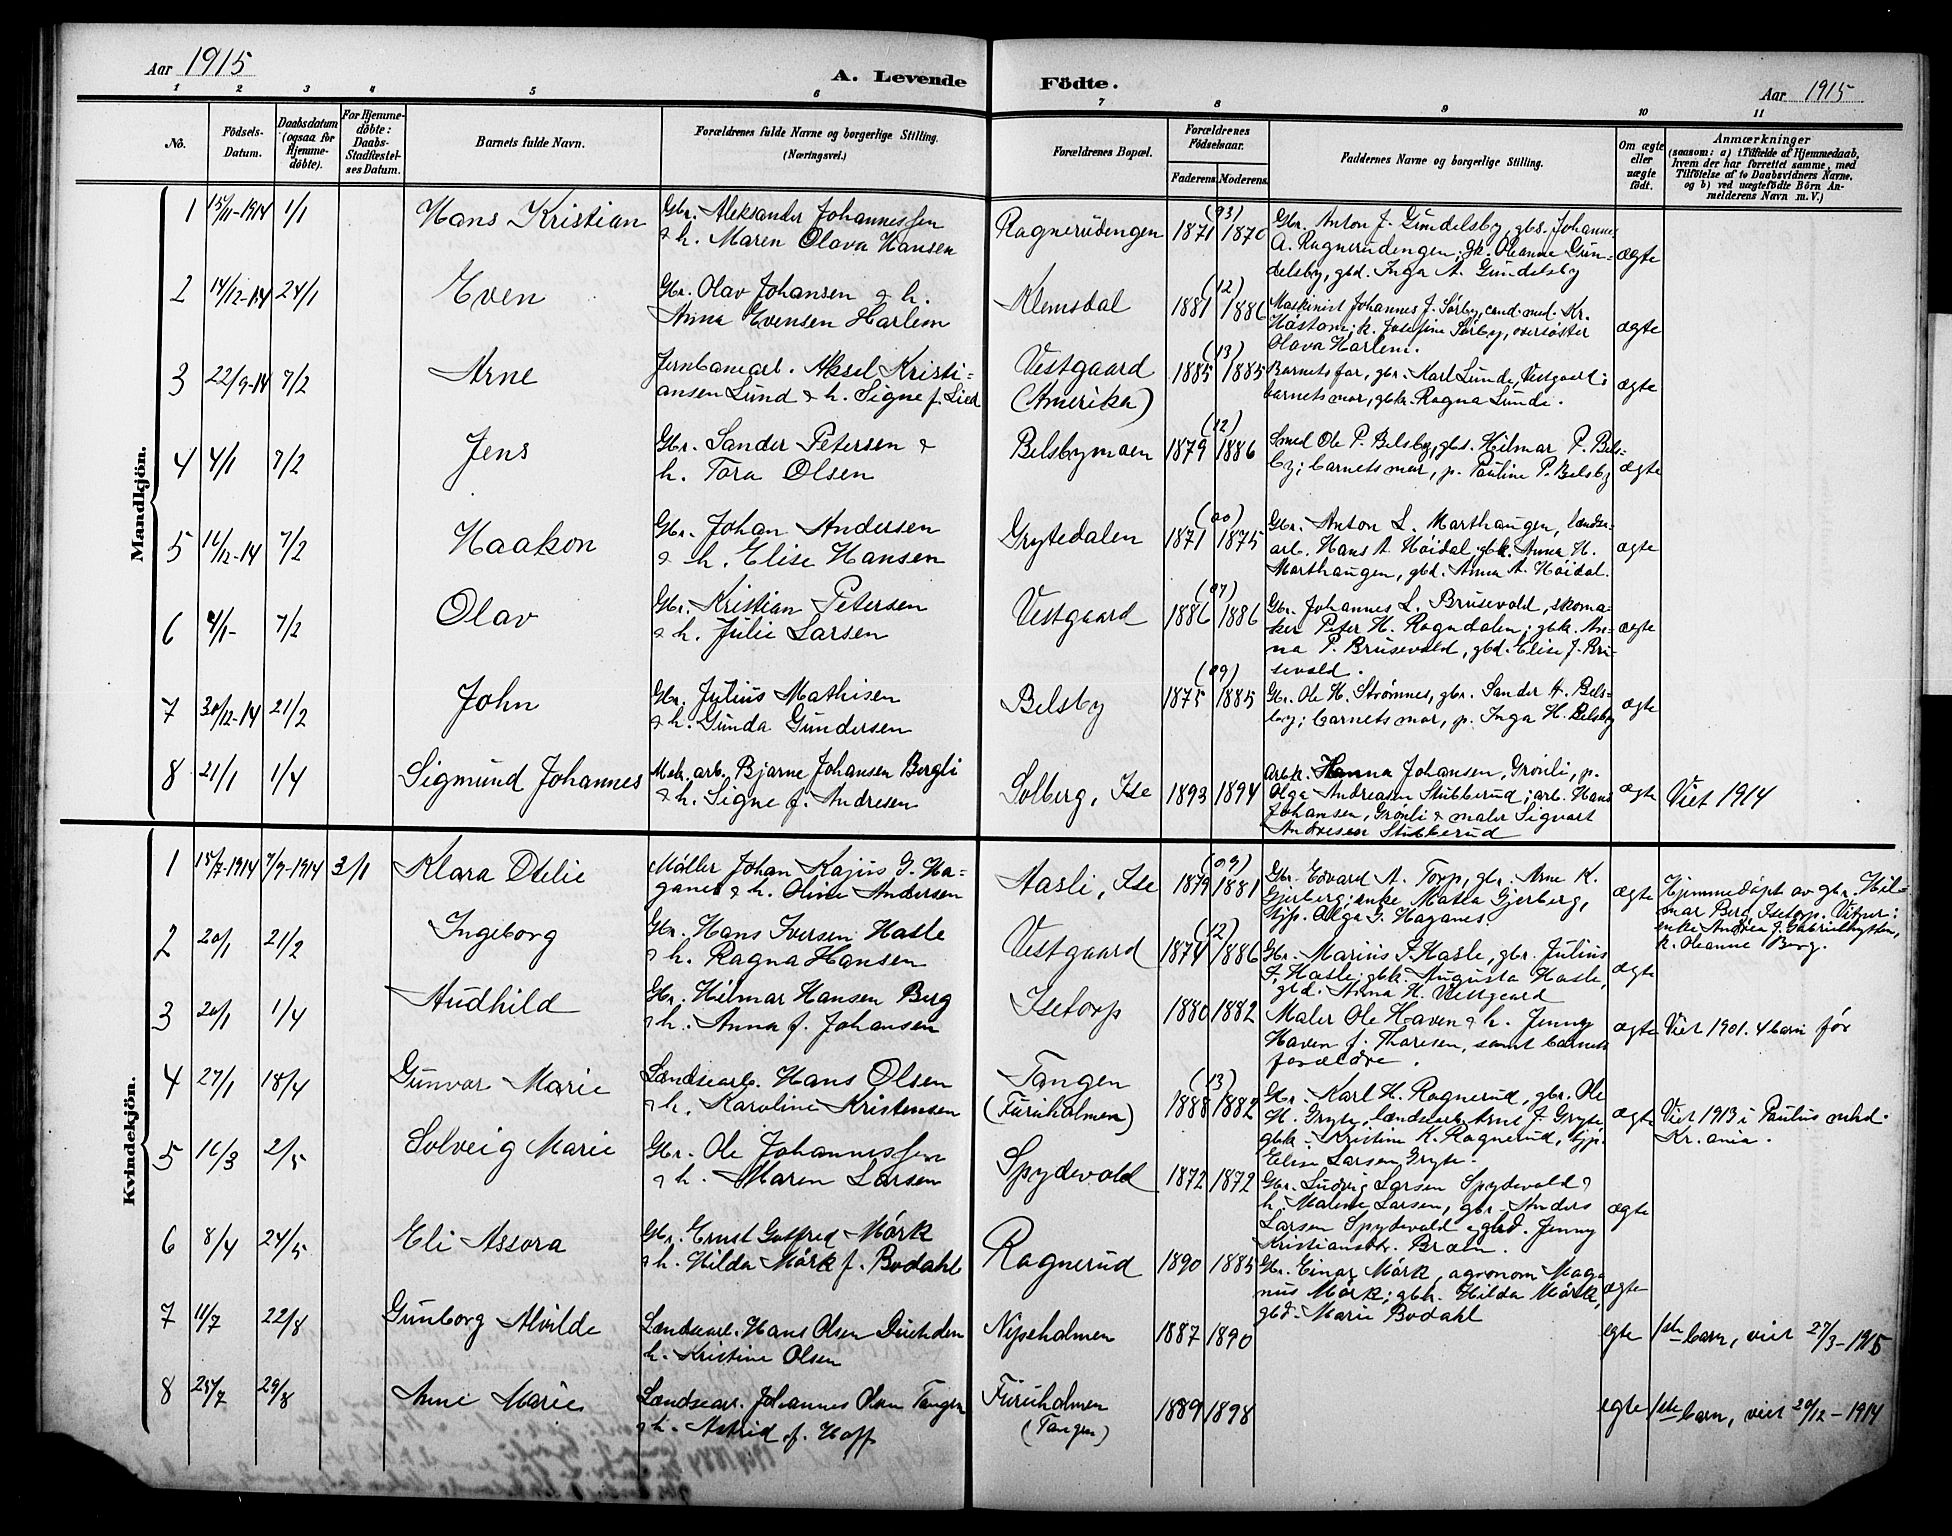 Aar 1915
A. Levende Födte.
Aar 1915
1 2 3 4 5 6 7 8 9 10 11
No.
Födsels-Datum.
Daabsdatum (ogsaa for Hjemmedöbte).
For Hjemmedöbte: Daabs-Stadfæstelses Datum.
Barnets fulde Navn.
Forældrenes fulde Navne og borgerlige Stilling.
(Næringsvei.)
Forældrenes Bopæl.
Forældrenes Fødselsaar.
Faderens.
Moderens.
Faddernes Navne og borgerlige Stilling.
Om ægte eller uægte født.
Anmærkninger
(saasom: a) i Tilfælde af Hjemmedaab, hvem der har forrettet samme, med Tilföielse af to Daabsvidners Navne, og b) ved uægtefödte Börn Anmelderens Navn m. V.)
Mandkjön.
1 15/11-1914 1/1 Hans Kristian
Gbr. Aleksander Johannessen
& h. Maren Olava Hansen
Ragnerudengen (93) 1871 1870
Gbr. Anton J. Gundelsby, gbs. Johannes
A. Ragnerudengen; gk. Oleanne Gun-
delsby, gbd. Inga A. Gundelsby
ægte
2 14/12-14 24/1 Even
Gbr. Olav Johansen & h.
Anna Evensen Harlem
Klemsdal (12) 1881 1886
Maskinist Johannes J. Sørby, cand. med. Kr.
Høstom; k. Josefine Sørby, oversøster
Olava Harlem.
ægte
3 22/9-14 7/2 Arne
Jernbanearb. Aksel Kristi-
ansen Lund & h. Signe f. Lied
Vestgaard
(Amerika)
(13) 1885 1885
Barnets far, gbr. Karl Lunde, Vestgaard;
barnets mor, gbk. Ragna Lunde.
ægte
4 4/1 7/2 Jens
Gbr. Sander Petersen &
h. Tora Olsen
Belsbymoen (12) 1879 1886
Smed Ole P. Belsby, gbs. Hilmar P. Bels-
by; barnets mor, p. Pauline P. Belsby
ægte
5 16/12-14 7/2 Haakon
Gbr. Johan Andersen
& h. Elise Hansen
Grytedalen (00) 1871 1875
Gbr. Anton L. Marthaugen, lændse-
arb. Hans A. Høidal; gbk. Anna H.
Marthaugen, gbd. Anna A. Høidal.
ægte
6 4/1- 7/2 Olav
Gbr. Kristian Petersen
& h. Julie Larsen
Vestgaard (07) 1886 1886
Gbr. Johannes L. Brusevold, skoma-
ker Peter H. Ragndalen; gbk. An-
na P. Brusevold, gbd. Elise J. Bru-
sevold.
ægte
7 30/12-14 21/2 John
Gbr. Julius Mathisen
& h. Gunda Gundersen
Belsby (09) 1875 1885
Gbr. Ole H. Strømnes, gbr. Sander H. Bels-
by; barnets mor, p. Inga H. Belsby
ægte
8 21/1 1/4 Sigmund Johannes
Mek. arb. Bjarne Johansen Bergli
& h. Signe f. Andresen
Solberg, Ise 1893 1894
Arbk. Hanna Johansen, Grønli, p.
Olga Andreasen Stubberud; arb. Hans
Johansen, Grønli & maler Sigvart
Andresen Stubberud
ægte
Viet 1914
Kvindekjön.
1 15/7-1914 7/9-1914 3/1 Klara Otelie
Møller Johan Kajus G. Ha-
ganes & h. Oline Andersen
Aasli, Ise (09) 1879 1881
Gbr. Edvard A. Torp, gbr. Arne K.
Gjerberg; enke Matea Gjerberg,
tjp. Olga G. Haganes
ægte
Hjemmedøpt av gbr. Hil-
mar Berg, Isetorp. Vitner:
enke Andrea J. Gabrielhytten,
k. Oleanne Berg.
2 20/1 21/2 Ingeborg
Gbr. Hans Iversen Hasle
& h. Ragna Hansen
Vestgaard (12) 1874 1886
Gbr. Marius I. Hasle, gbr. Julius
I. Hasle; gbk. Augusta Hasle,
gbd. Anna H. Vestgaard
ægte
3 20/1 1/4 Audhild
Gbr. Hilmar Hansen Berg
& h. Anna f. Johansen
Isetorp 1880 1882
Maler Ole Haven & h. Jenny
Haven f. Thoresen, samt barnets
forældre.
ægte
Viet 1901. 4 barn før
4 27/1 18/4 Gunvor Marie
Lændsearb. Hans Olsen
& h. Karoline Kristensen
Tangen
(Furuholmen)
(13) 1888 1882
Gbr. Karl H. Ragnerud, gbr. Ole
H. Gryte, lændsearb. Arne J. Gryte,
gbk. Kristine K. Ragnerud, tjp.
Elise Larsen Gryte.
ægte
Viet 1913 i Paulus mhd.
Kr.ania.
5 16/3 2/5 Solveig Marie
Gbr. Ole Johannessen
& h. Maren Larsen
Spydevold 1872 1872
Gbr. Ludvig Larsen Spydevold &
h. Malene Larsen, gbr. Anders
Larsen Spydevold & gbd. Jenny
Kristiansdtr. Braten.
ægte
6 8/4 24/5 Eli Assora
Gbr. Ernst Gotfred Mørk
& h. Hilda Mørk f. Bodahl
Ragnerud 1890 1885
Gbr. Einar Mørk, agronom Mag-
nus Mørk; gbk. Hilda Mørk,
gbd. Marie Bodahl
ægte
7 11/7 22/8 Gunborg Alvilde
Lændsearb. Hans Olsen
h. Kristine Olsen
Nipeholmen 1887 1890
egte
1ste barn, viet 27/3-1915
8 25/7 29/8 Anne Marie
Lændsearb. Johannes Olsen Tangen
& h. Astrid f. Hoff
Furuholmen
(Tangen)
1889 1898
egte
1ste barn, viet 20/12-1914